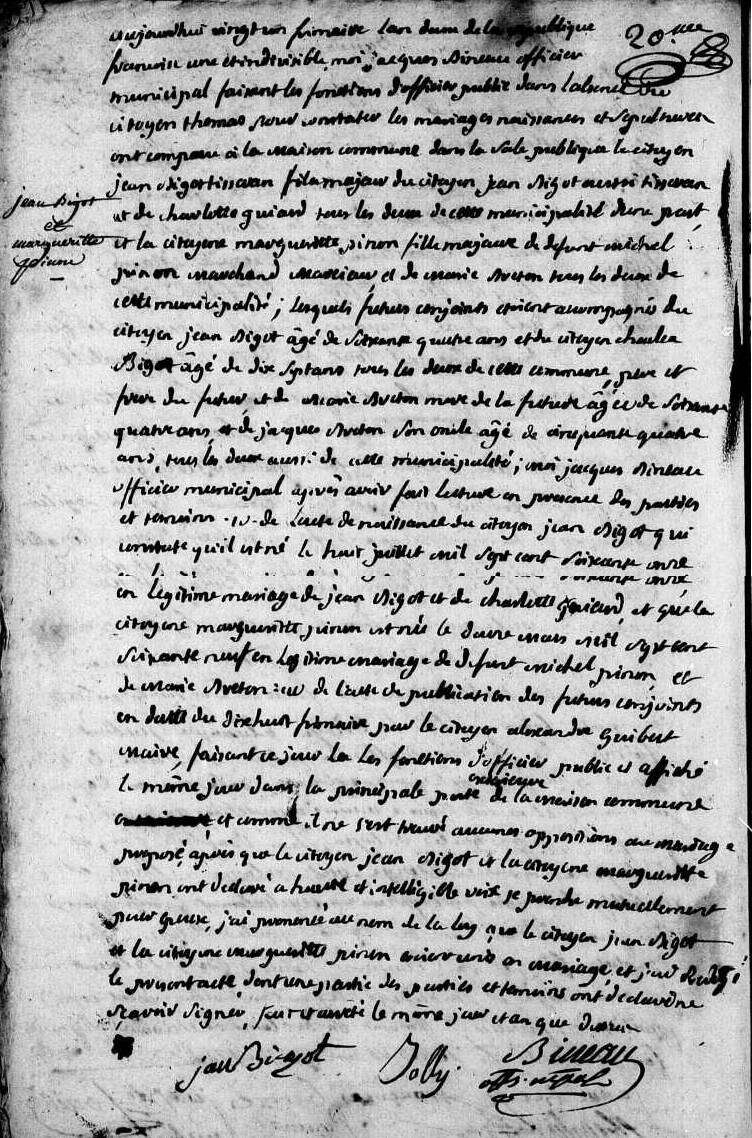 20.me
aujourdhui vingt un frimaire lan deux de la republique
francoise une et indivisible, moi jacques Bineau officier
municipal faisant les fonctions d'officier public dans l'absence du
citoyen thomas pour constater les mariages naissances et sepultures
ont comparu a la maison commune dans la sale publique le citoyen
jean Bigot tisseran fils majeur du citoyen jean Bigot aussi tisseran
jean Bigot
et
margueritte
pinon
et de charlotte guiard tous les deux de cette municipalité d'une part
et la citoyene margueritte pinon fille majeure de defunt michel
pinon marchand et de marie Breton tous les deux de
cette municipalité; lesquels futurs conjoints etoient accompagnés du
citoyen jean Bigot âgé de soixante quatre ans et du citoyen charles
Bigot âgé de dix sept ans tous les deux de cette commune, pere et
frere du futur et de marie Breton mere de la future âgée de soixante
quatre ans, et de jacques Breton son oncle âgé de cinquante quatre
ans, tous les deux aussi de cette municipalité; moi jacques Bineau
officier municipal après avoir fait lecture en presence des parties
et temoins .1o. de l'acte de naissance du citoyen jean Bigot qui
constate qu'il est né le huit juillet mil sept cent soixante onze
en légitime mariage de jean Bigot et de charlotte guiard, et que la
citoyene margueritte pinon est née le douze mars mil sept cent
soixante neuf en legitime mariage de defunt michel pinon et
de marie Breton: 2o de l'acte de publication des futurs conjoints
en datte du dixhuit frimaire par le citoyen alexandre guibert
maire, faisant ce jour la les fonctions d'officier public et affiché
le même jour dans la principale porte exterieure de la maison commune
et comme il ne s'est trouvé aucunes oppositions au mariage
proposé, après que le citoyen jean Bigot et la citoyene margueritte
pinon ont declaré a haute et intelligible voix se prendre mutuellement
pour epoux, j'ai prononcé au nom de la loy que le citoyen jean Bigot
et la citoyene margueritte pinon etoient unis en mariage, et j'ai redigé
le present acte dont une partie des parties et temoins ont declaré ne
sçavoir signer, fait et arreté le même jour et an que dessus
jean Bigot Jolly. Bineau
off. mpal